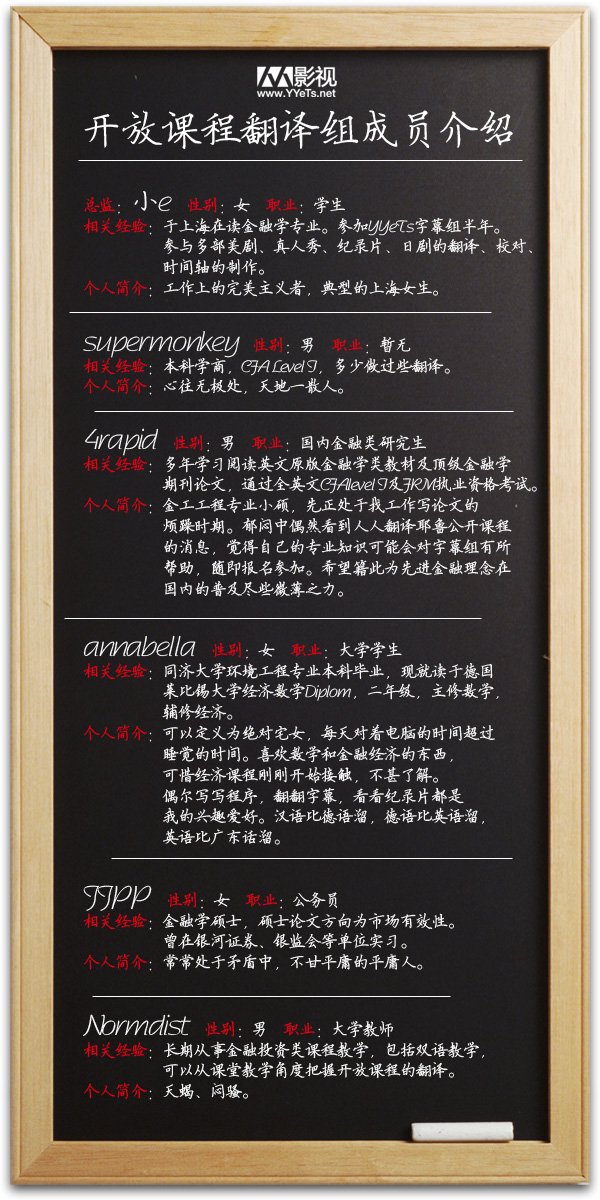 人人影视
www.YYeTs.net
开放课程翻译组成员介绍
总监：小e 性别：女 职业：学生
相关经验：于上海在读金融学专业。参加YYeTs字幕组半年。
参与多部美剧、真人秀、纪录片、日剧的翻译、校对、
时间轴的制作。
个人简介：工作上的完美主义者，典型的上海女生。
supermonkey 性别：男 职业：暂无
相关经验：本科学商，CFA Level I，多少做过些翻译。
个人简介：心往无极处，天地一散人。
4rapid 性别：男 职业：国内金融类研究生
相关经验：多年学习阅读英文原版金融学类教材及顶级金融学
期刊论文，通过全英文CFAlevel I及FRM执业资格考试。
个人简介：金工工程专业小硕，先正处于找工作写论文的
烦躁时期。郁闷中偶然看到人人翻译耶鲁公开课程
的消息，觉得自己的专业知识可能会对字幕组有所
帮助，随即报名参加。希望籍此为先进金融理念在
国内的普及尽些微薄之力。
annabella 性别：女 职业：大学学生
相关经验：同济大学环境工程专业本科毕业，现就读于德国
莱比锡大学经济数学Diplom，二年级，主修数学，
辅修经济。
个人简介：可以定义为绝对宅女，每天对着电脑的时间超过
睡觉的时间。喜欢数学和金融经济的东西，
可惜经济课程刚刚开始接触，不甚了解。
偶尔写写程序，翻翻字幕，看看纪录片都是
我的兴趣爱好。汉语比德语溜，德语比英语溜，
英语比广东话溜。
JJPP 性别：女 职业：公务员
相关经验：金融学硕士，硕士论文方向为市场有效性。
曾在银河证券、银监会等单位实习。
个人简介：常常处于矛盾中，不甘平庸的平庸人。
Normdist 性别：男 职业：大学教师
相关经验：长期从事金融投资类课程教学，包括双语教学，
可以从课堂教学角度把握开放课程的翻译。
个人简介：天蝎、闷骚。